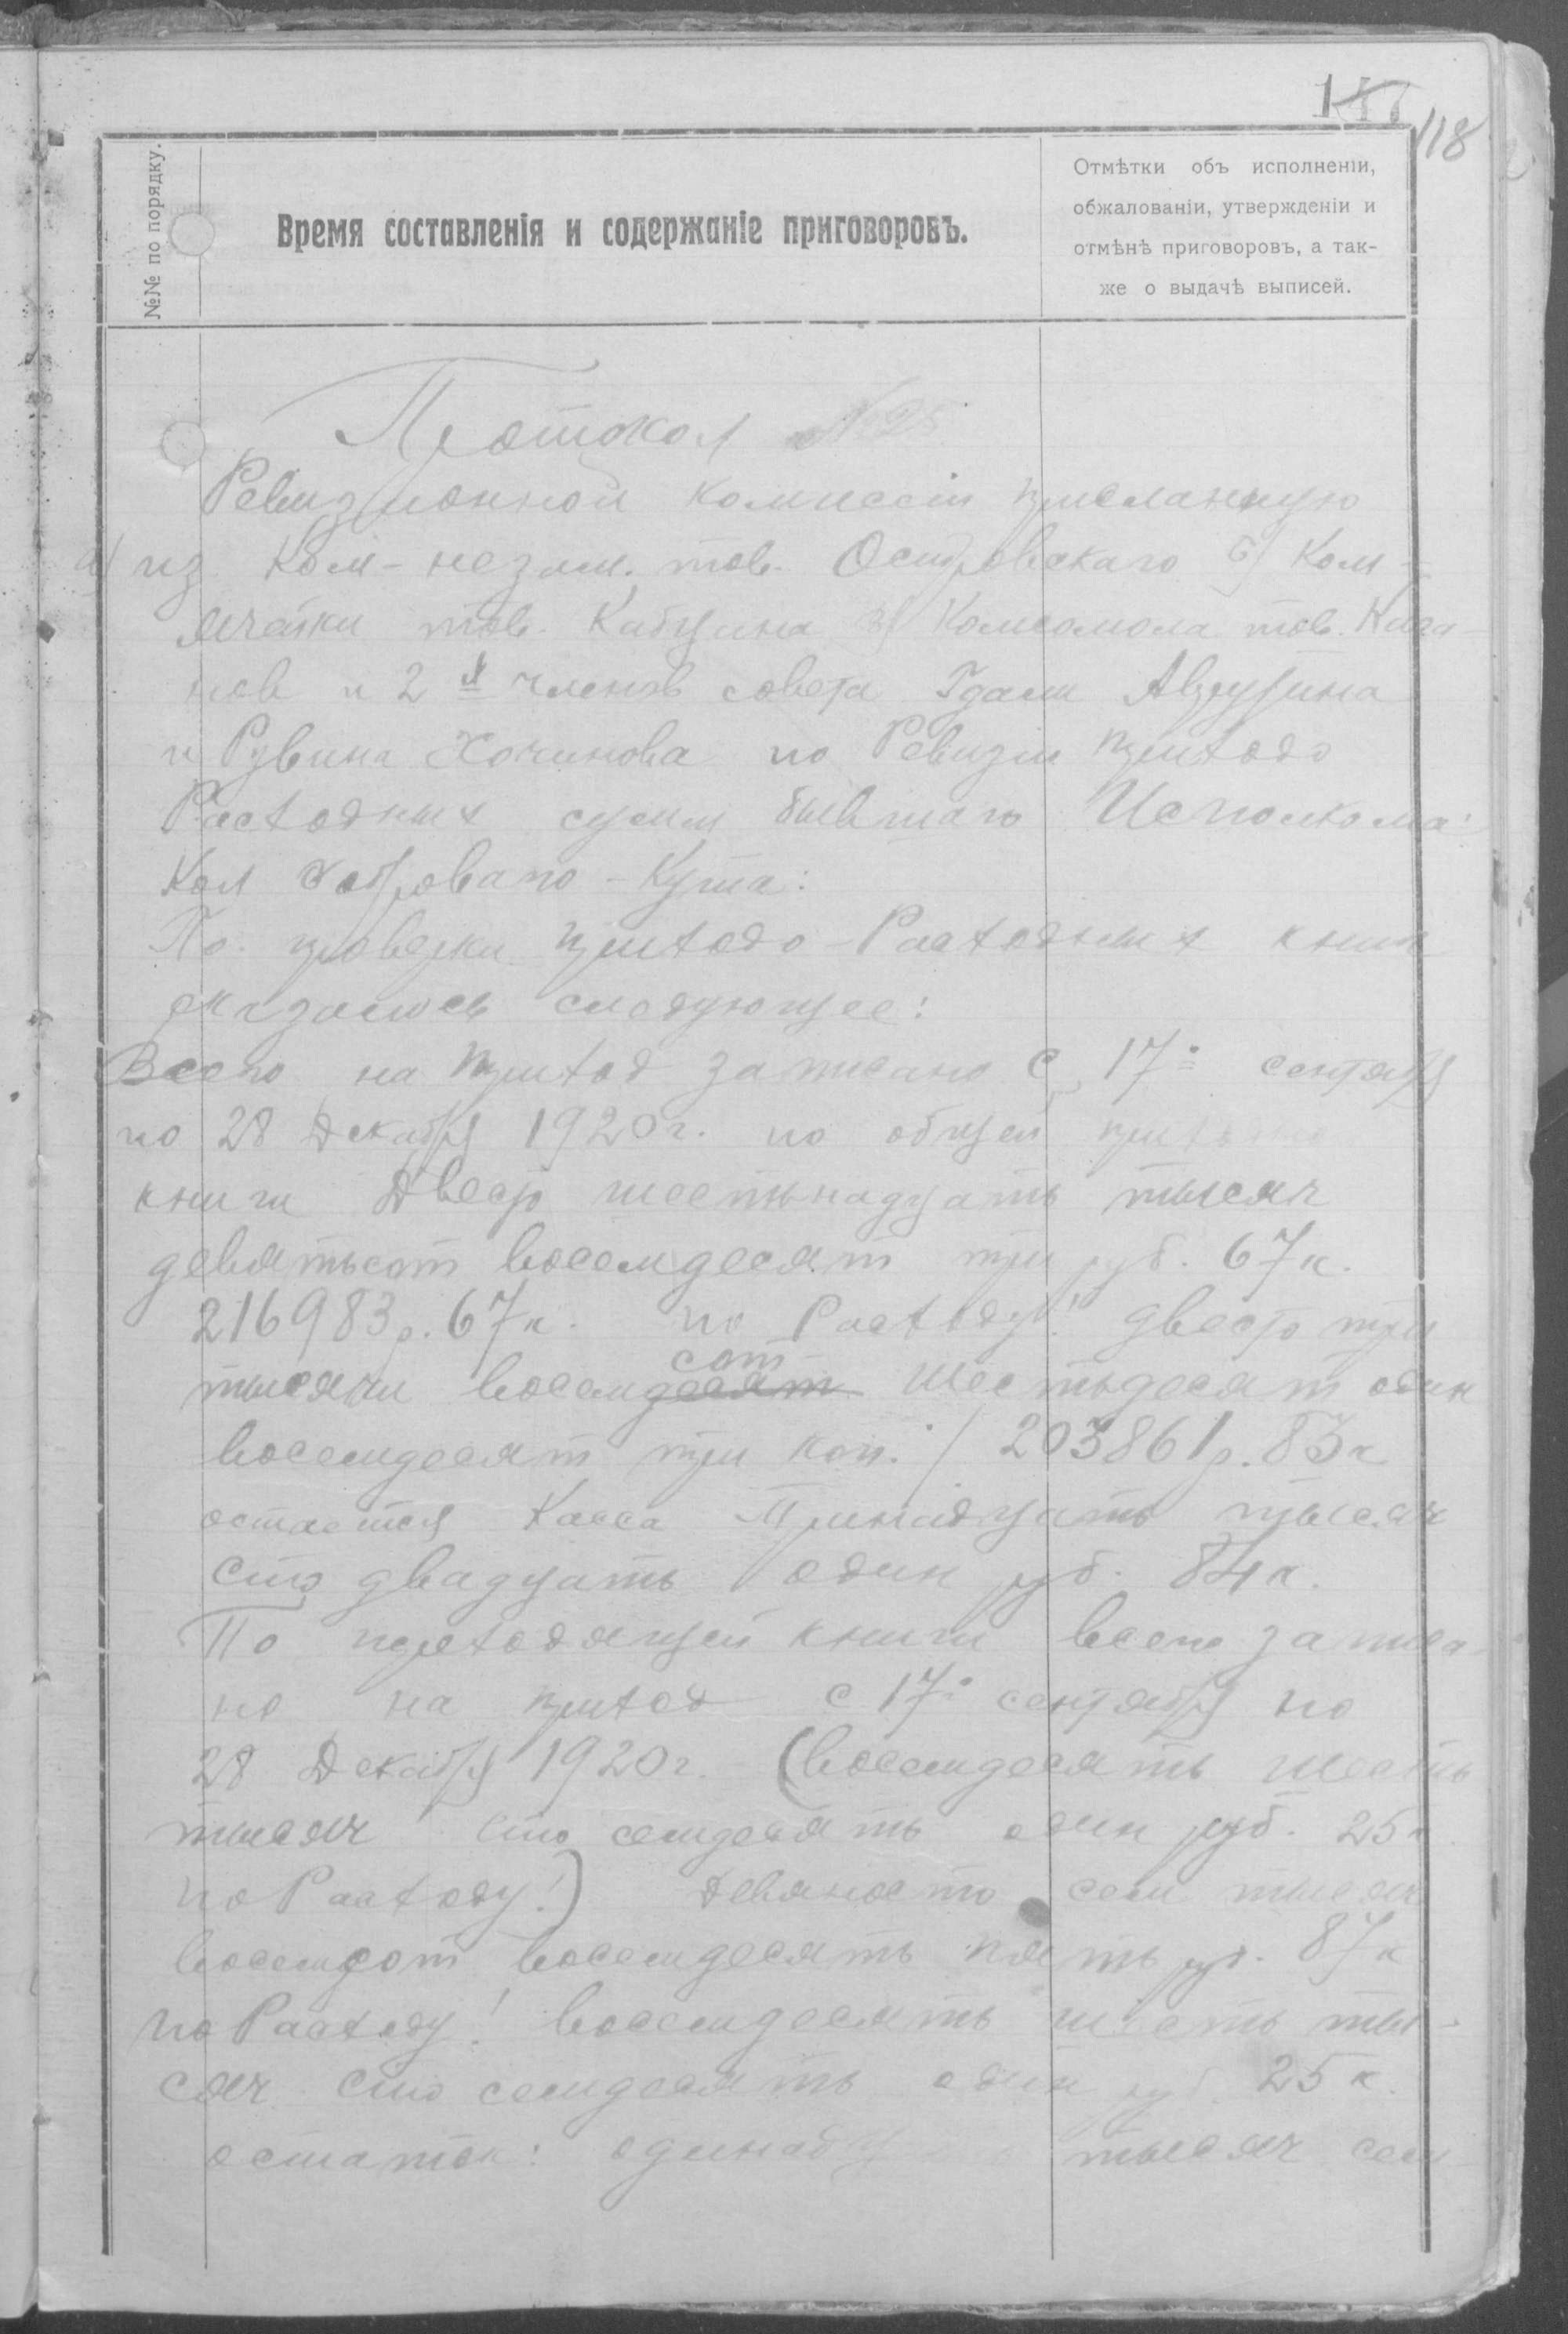 118
№№ по порядку.
Время составленія и содержаніе приговоровъ.
Отмѣтки объ исполненіи,
обжалованіи, утвержденіи и
отмѣнѣ приговоровъ, а так-
же о выдачѣ выписей.
Протокол №25
Ревизионной комиссіи присланную
а) из Ком-незам. тов. Островскаго б) Ком-
ячейки тов. Кабушна в) Комсомола тов. Кага-
нов и 2х членов совета Гдали
и Рувина Хочинова по Ревизіи приходо
Расходних сумм бывшаго Исполкома
Кол Бобровапо-Кута:
По проверки приходо-Расходних книг
оказалось следующее:
Всего на приход записано с 17го сентября
по 28 Декабря 1920г. по общей
книги Двести шестьнадцать тысяч
девятьсот восемдесят три руб. 67к.
216983р. 67к. по Расходу! двести три
сот
тысячи восемдесят шестьдесят один
восемдесят три коп. / 203861р. 83к
остается Касса Тринадцать тысяч
сто двадцать один руб. 84к.
По переходящей книги всего записа-
но на приход с 17го сентября по
28 Декабря 1920г. (восемдесять шесть
тысяч сто семдесять один руб. 25к
по Расходу!) девяносто сем тысяч
восемсот восемдесять пять руб. 87к
по Расходу! восемдесять шесть ты-
сяч сто семдесять один руб 25к.
остаток: одинадц тысяч сем-